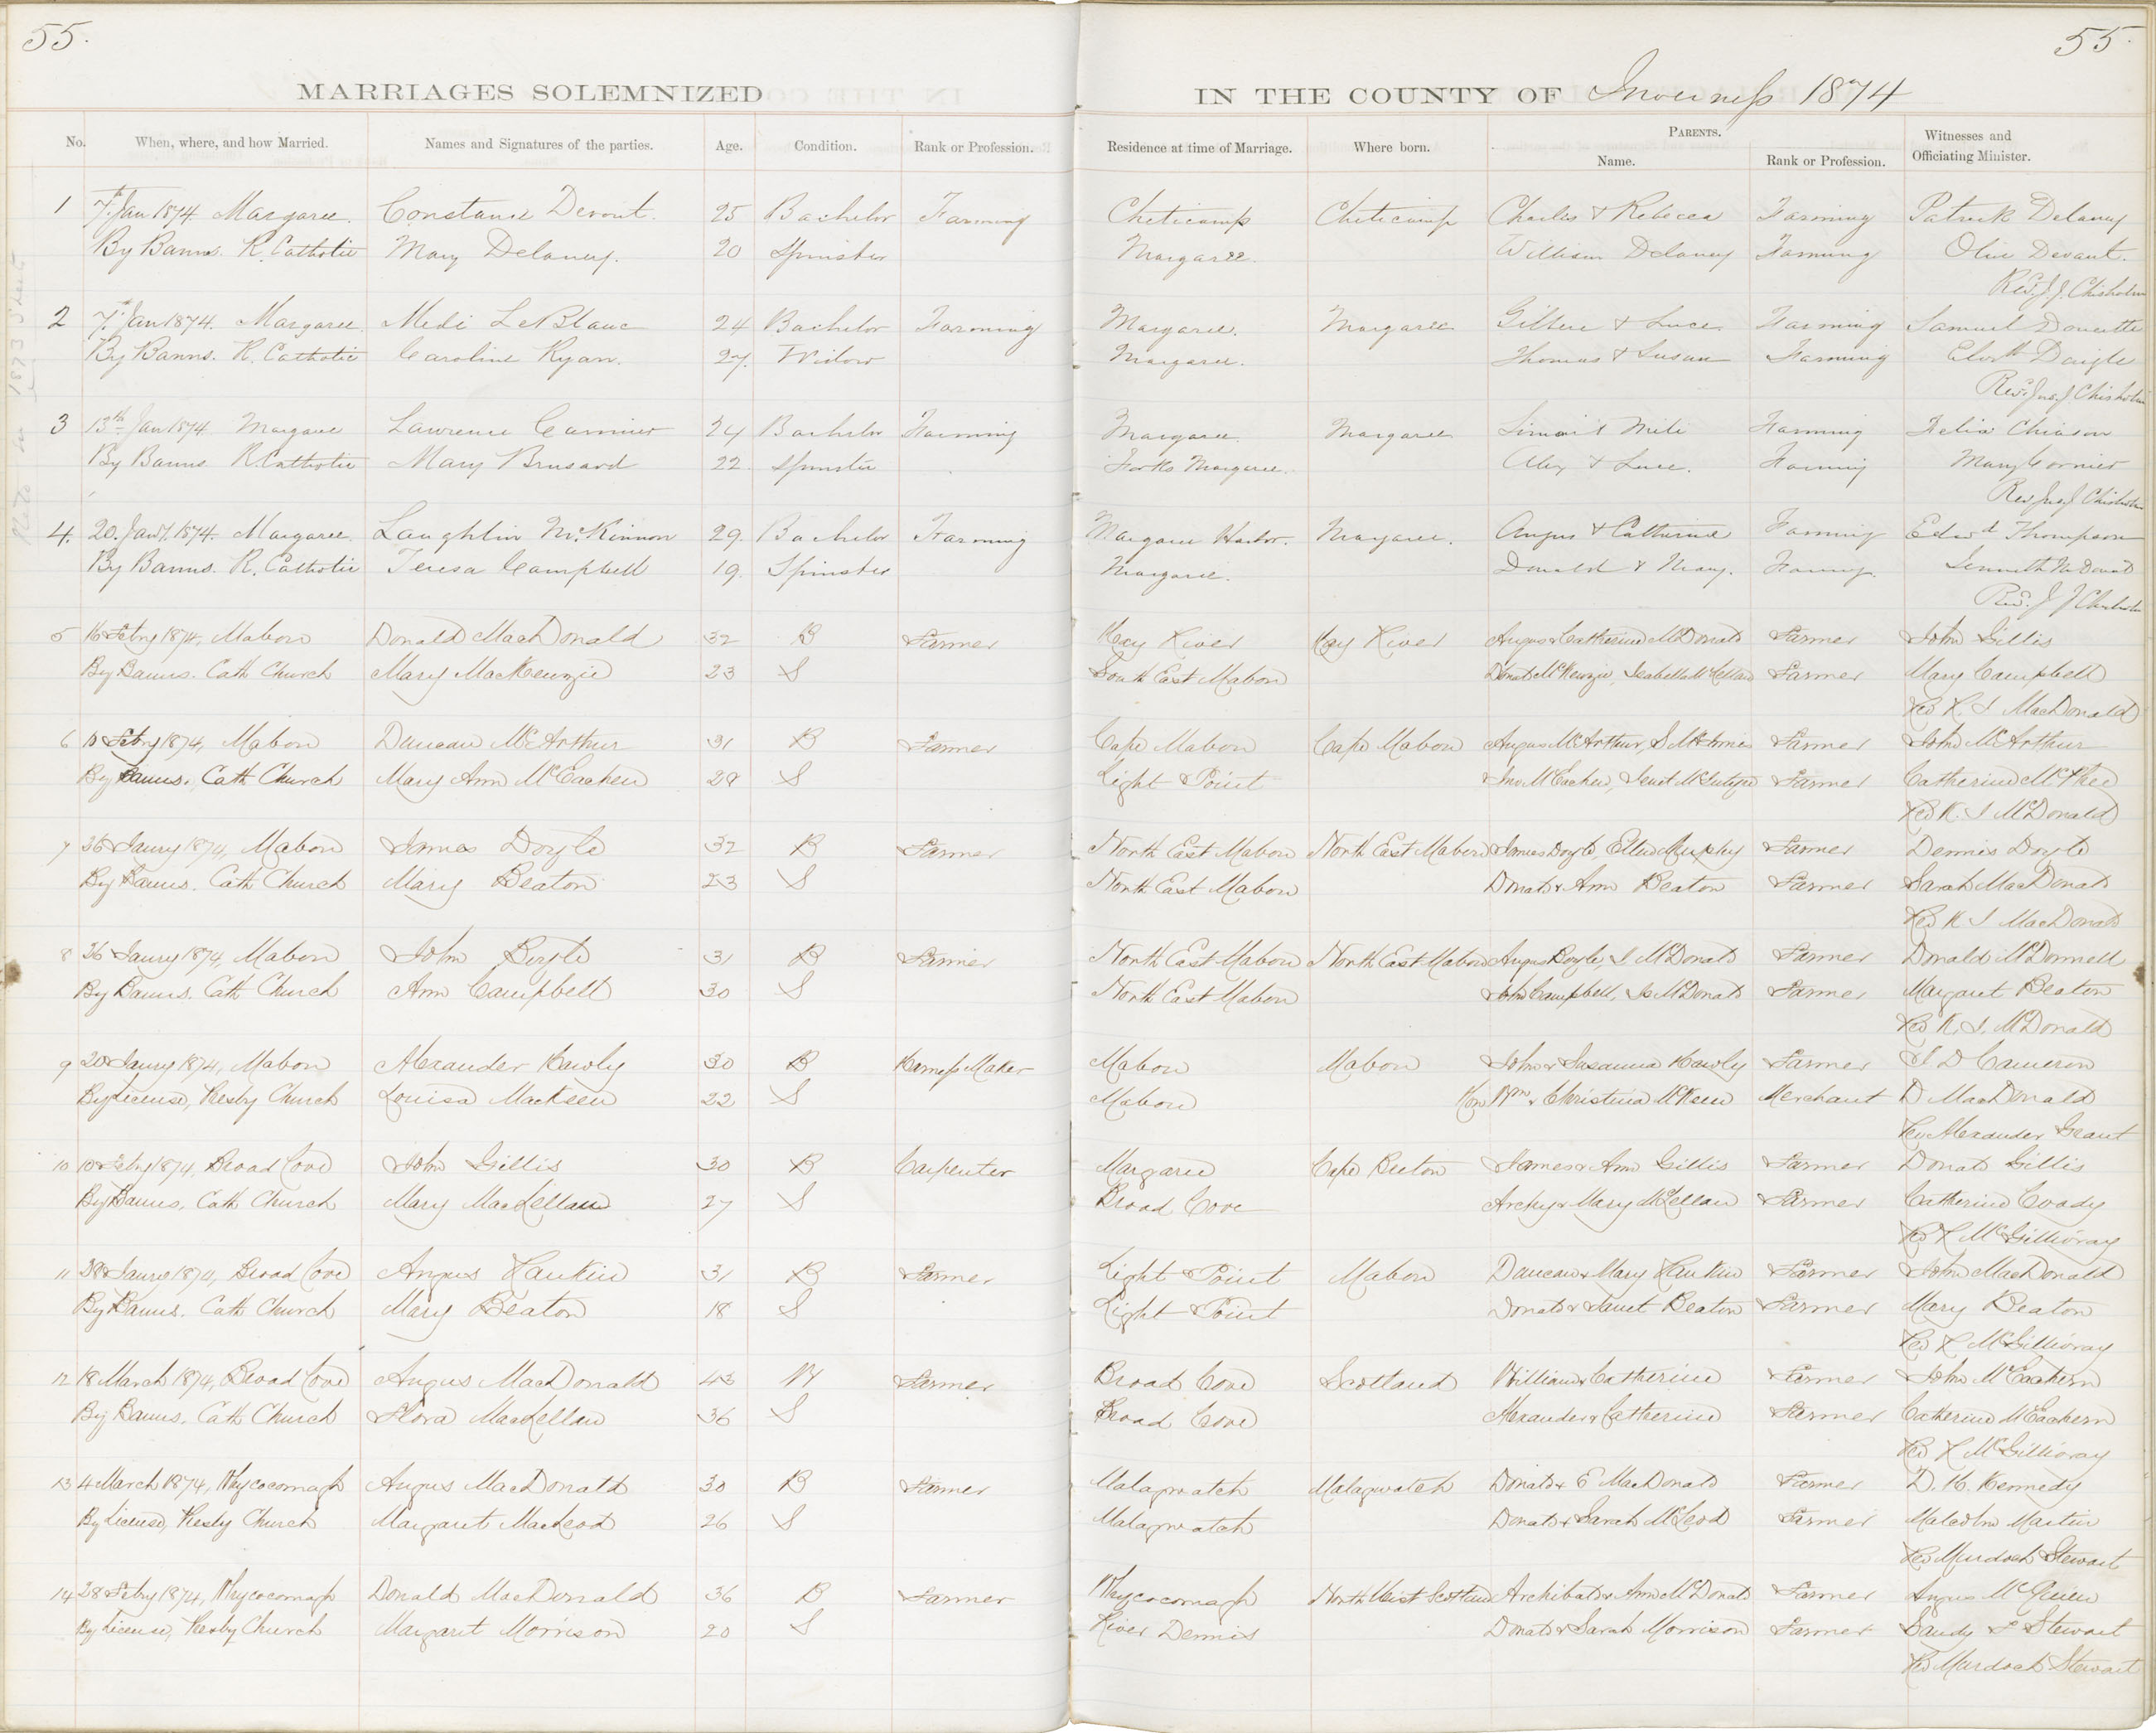 55.
55.
MARRIAGES SOLEMNIZED
IN THE COUNTY OF Inverness 1874
No. When, where, and how Married. Names and Signatures of the parties. Age. Condition. Rank or Profession. Residence at time of Marriage. Where born. PARENTS. Name. Rank or Profession. Witnesses and Officiating Minister.
1 7th Jan 1874 Margaree. Constant Devout. 25 Bachelor Farming Cheticamp Cheticamp Charles & Rebecca Farming Patrick Delaney
By Banns. R. Catholic Mary Delaney. 20 Spinster Margaree. William Delaney Farming Olive Devaut.
Revd. J. J. Chisholm
2 7th Jan 1874. Margaree. Medi LeBlanc 24 Bachelor Farming Margaree. Margaree Gilbere & Luce Farming Samuel Doucette
By Banns. R. Catholic Caroline Ryan. 27. Widow Margaree. Thomas & Susan Farming Daigle
Revd. Chisholm
3 13th Jan 1874. Margaree Lawrence Cormier 24 Bachelor Farming Margaree. Margaree Farming Felix Chiason
By Banns R Catholic Mary Brusard 22 Spinster Forks Margaree. Alex & Luce. Farming Mary Cormier
Rev Chisholm
4. 20. Jany. 1874. Margaree. Laughlin McKinnon 29. Bachelor Farming Margaree Harbor. Margaree. Angus & Catherine Farming Edwd Thompson
By Banns. R. Catholic Teresa Campbell 19. Spinster Margaree. Donald & Mary. Farming.
Revd. J J Chisholm
5 16 Febry 1874, Mabou Donald MacDonald 32 B Farmer Hay River Hay River Angus & Catherine McDonald Farmer John Gillis
By Banns. Cath Church Mary MacKenzie 23 S South East Mabou Donald McKenzie, Isabella McLellan Farmer Mary Campbell
Rev K. J MacDonald
6 10 Febry 1874, Mabou Duncan McArthur 31 B Farmer Cape Mabou Cape Mabou Angus McArthur, S Farmer John McArthur
By Banns. Cath Church Mary Ann McEachen 28 S Sight Point Jno McEachen, Janet McIntyre Farmer Catherine McPhee
Rev K. J McDonald
7 26 Janry 1874, Mabou James Doyle 32 B Farmer North East Mabou North East Mabou James Doyle, Ellen Murphy Farmer Dennis Doyle
By Banns. Cath Church Mary Beaton 23 S North East Mabou Donald & Ann Beaton Farmer Sarah MacDonald
Rev K J MacDonald
8 26 Janry 1874, Mabou John Boyle 31 B Farmer North East Mabou North East Mabou Angus Boyle, J. McDonald Farmer Donald McDonnell
By Banns. Cath Church Ann Campbell 30 S North East Mabou John Campbell, Is McDonald Farmer Margaret Beaton
Rev K. J. McDonald
9 20 Janry 1874, Mabou Alexander Hawly 30 B Harness Maker Mabou Mabou John & Susanna Hawly Farmer J D Cameron
By License, Presby Church Louisa MacKeen 22 S Mabou Hon Wm & Christina McKeen Merchant D MacDonald
Rev Alexander Grant
10 10 Febry 1874, Broad Cove John Gillis 30 B Carpenter Margaree Cape Breton James & Ann Gillis Farmer Donald Gillis
By Banns, Cath Church Mary MacLellan 27 S Broad Cove Archy & Mary McLellan Farmer Catherine Coady
Rev R McGillivray
11 28 Janry 1874, Broad Cove Angus Rankin 31 B Farmer Sight Point Mabou Duncan & Mary Rankin Farmer John MacDonald
By Banns. Cath Church Mary Beaton 18 S Sight Point Donald & Janet Beaton Farmer Mary Beaton
Rev R McGillivray
12 18 March 1874, Broad Cove Angus MacDonald 43 W Farmer Broad Cove Scotland William & Catherine Farmer John McEachern
By Banns. Cath Church Flora MacLellan 36 S Broad Cove Alexander & Catherine Farmer Catherine McEachern
Rev R McGillivray
13 4 March 1874, Whycocomagh Angus MacDonald 30 B Farmer Malagwatch Malagwatch Donald & E MacDonald Farmer D. K. Kennedy
By License, Presby Church Margaret MacLeod 26 S Malagwatch Donald & Sarah McLeod Farmer Malcolm Martin
Rev Murdoch Stewart
14 28 Febry 1874, Whycocomagh Donald MacDonald 36 B Farmer Whycocomagh North Uist Scotland Archibald & Ann McDonald Farmer Angus McQueen
By License, Presby Church Margaret Morrison 20 S River Dennis Donald & Sarah Morrison Farmer Sandy F Stewart
Rev Murdoch Stewart